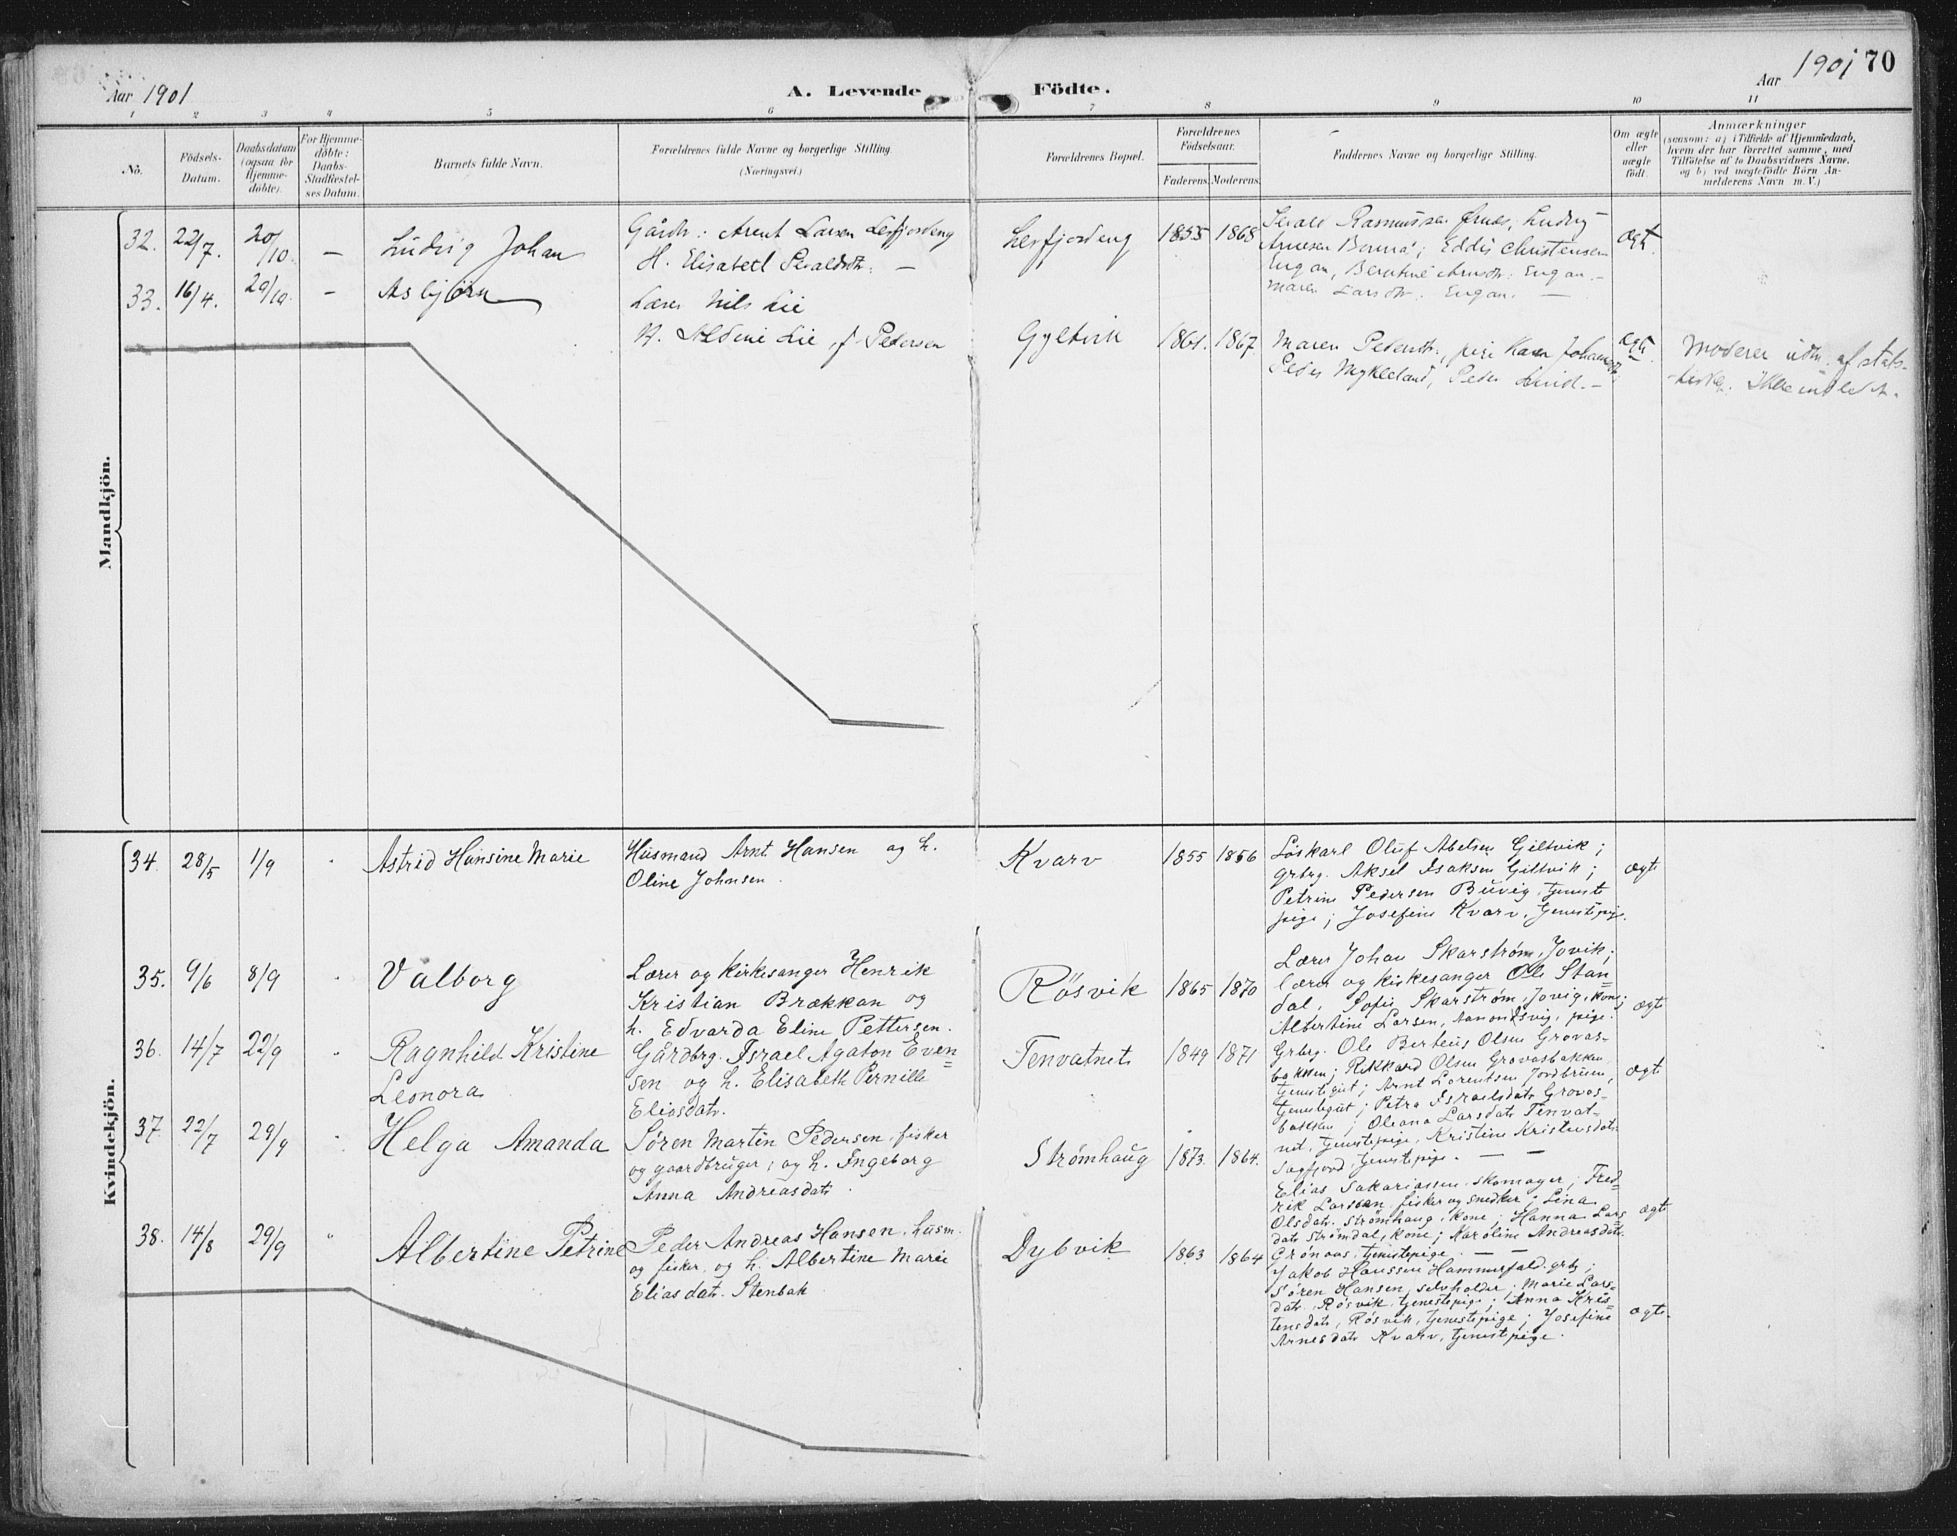 Aar 1901
A. Levende Födte.
Aar 1901 70
1 2 3 4 5 6 7 8 9 10 11
No.
Födsels-
Datum.
Daabsdatum
(ogsaa for
Hjemme-
döbte).
For Hjemme-
döbte:
Daabs-
Stadfæstel-
ses Datum.
Barnets fulde Navn.
Forældrenes fulde Navne og borgerlige Stilling.
(Næringsvei.)
Forældrenes Bopæl.
Forældrenes
Födselsaar.
Faderens. Moderens.
Faddernes Navne og borgerlige Stilling.
Om ægte
eller
uægte
födt.
Anmærkninger
(saasom: a) i Tilfælde af Hjemmedaab,
hvem der har forrettet samme, med
Tilföielse af to Daabsvidners Navne.
og b) ved uægtefödte Börn An-
melderens Navn m. V.)
Mandkjön.
32. 22/7. 20/10 – Ludvig Johan
Gårdbr: Arent Larsen Leifjordeng
H. Elisabeth
Leifjordeng 1855 1868
Rasmussen Ludvig
Arnesen Eddis Christensen
Engan, Engan.
Maren Larsdtr. Engan. –
ægte
33. 16/4. 20/10. – Asbjørn
Lærer Nils Lie
H. Lie, f. Pedersen
Gyltvik 1861. 1867.
Maren pige Karen
Peder Mykleland, Peder
ægte.
Moderen udm. af stats-
Kvindekjön.
34. 28/5 1/9 " Astrid Hansine Marie
Husmand Arnt Hansen og h.
Oline Johnsen.
Kvarv 1855 1856
Löskarl Oluf Abelsen Giltvik;
grbrg. Aksel Isaksen Giltvik;
Petrine Pedersen Buvig, tjeneste
pige; Josefine Kvarv, tjenestepige.
ægte
35. 9/6 8/9 " Valborg
Lærer og Kirkesanger Henrik
Kristian Brækkan og
h. Edvarda Eline Pettersen.
Rösvik 1865 1870
Lærer Johan Skarstrøm, Jovik;
lærer og kirkesanger Ole Stan=
dal, Sofie Skarstrøm, Jovig, kone;
Albertine Larsen, pige.
ægte
36. 14/7 22/9 " Ragnhild Kristine
Leonora
Gårdbrg. Israel Agaton Even=
sen og h. Elisabeth Pernille
Eliasdatr.
Tenvatnet 1849 1871
Grbrg. Ole Berteus Olsen Grovas-
bakken; Rikkard Olsen Grovasbakken,
tjenestegut; Arnt Lorentsen
tjenestegut; Petra Israelsdatr Grovas-
bakken; Oleana Larsdatr Tenvat-
net, tjenestepige, Kristine Kristensdatr
Sagfjord, tjenestepige. – –
ægte
37. 22/7 29/9 " Helga Amanda
Sören Martin Pedersen, fisker
og gaardbruger, og h. Ingeborg
Anna Andreasdatr.
Strømhaug 1873. 1864.
Elias Sakariassen skomager; Fred=
rik Larssen, fisker og snedker; Lina
Olsdatr. Strømhaug, kone; Hanna Lars
datr Strømdal, kone; Karoline Andreasdatr.
Grönaas, tjenestepige. – –
ægte
38. 14/8 29/9 " Albertine Petrine
Peder Andreas Hansen, husm.
og fisker, og h. Albertine Marie
Eliasdatr. Stenbak
Dybvik 1863 1864
Jakob Hanssen Hammerfald grb;
Sören Hansen, selvholder; Marie Lars-
datr. Rösvik, tjenestepige; Anna Kris=
tensdatr, Rösvik, tjenestepige; Josefine
Arnesdatr Kvarv, tjenestepige.
ægte.